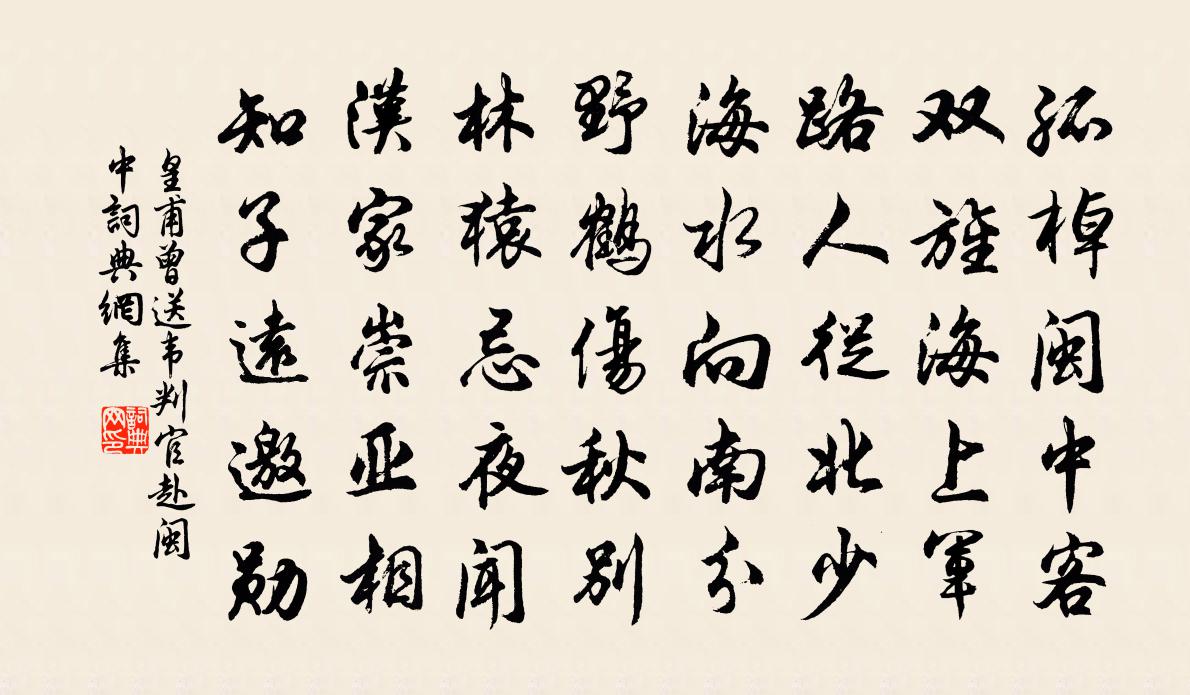 孤棹闽中客
双旌海上军
路人從北少
海水向南分
野鶴傷秋别
林猿忌夜闻
漢家崇亚相
知子遠邀勋
皇甫曾送韦判官赴闽
中詞典網集
詞典网印